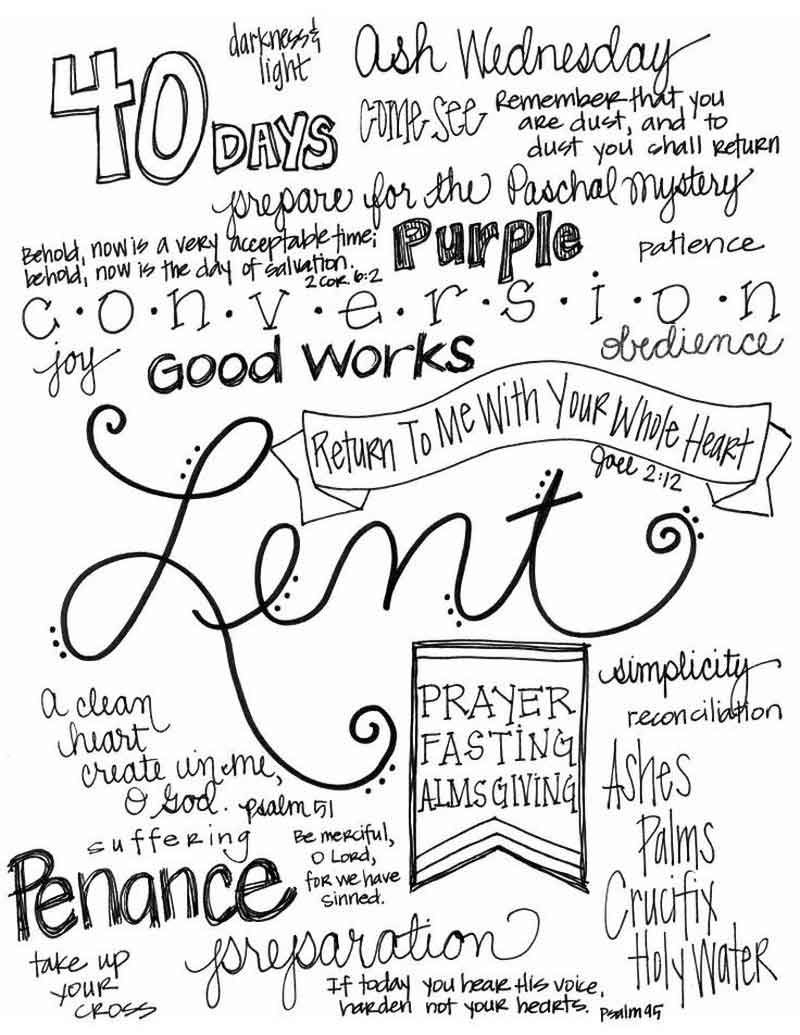 40 DAYS
darkness &
light
Ash Wednesday
come see
Remember that you
are dust, and to
dust you shall return
prepare for the Paschal Mystery
Behold, now is a very acceptable time;
behold, now is the day of salvation.
2 Cor. 6:2
Purple
patience
c·o·n·v·e·r·s·i·o·n
joy
Good Works
obedience
Return To Me With Your Whole Heart
Joel 2:12
Lent
PRAYER
FASTING
ALMSGIVING
simplicity
reconciliation
a clean
heart
create in me,
O God. psalm 51
suffering
Be merciful,
O Lord,
for we have
sinned.
Ashes
Palms
Crucifix
Holy Water
Penance
preparation
take up
your
cross
If today you hear His voice,
harden not your hearts. Psalm 95